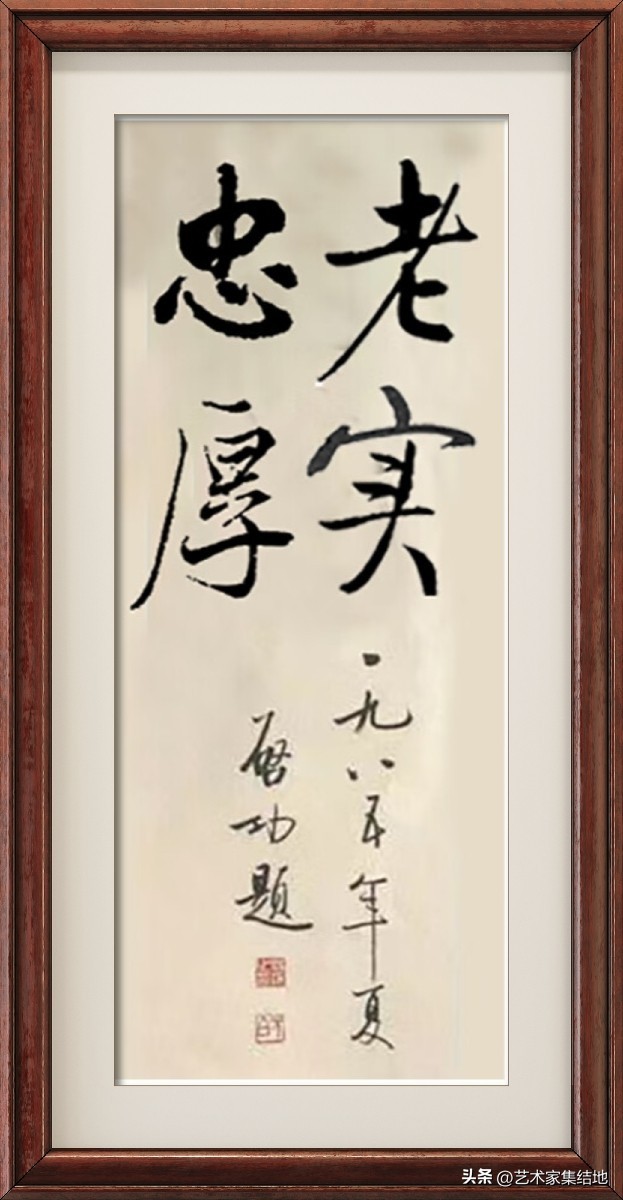 老实
忠厚
一九八五年夏
启功题
头条 @艺术家集结地